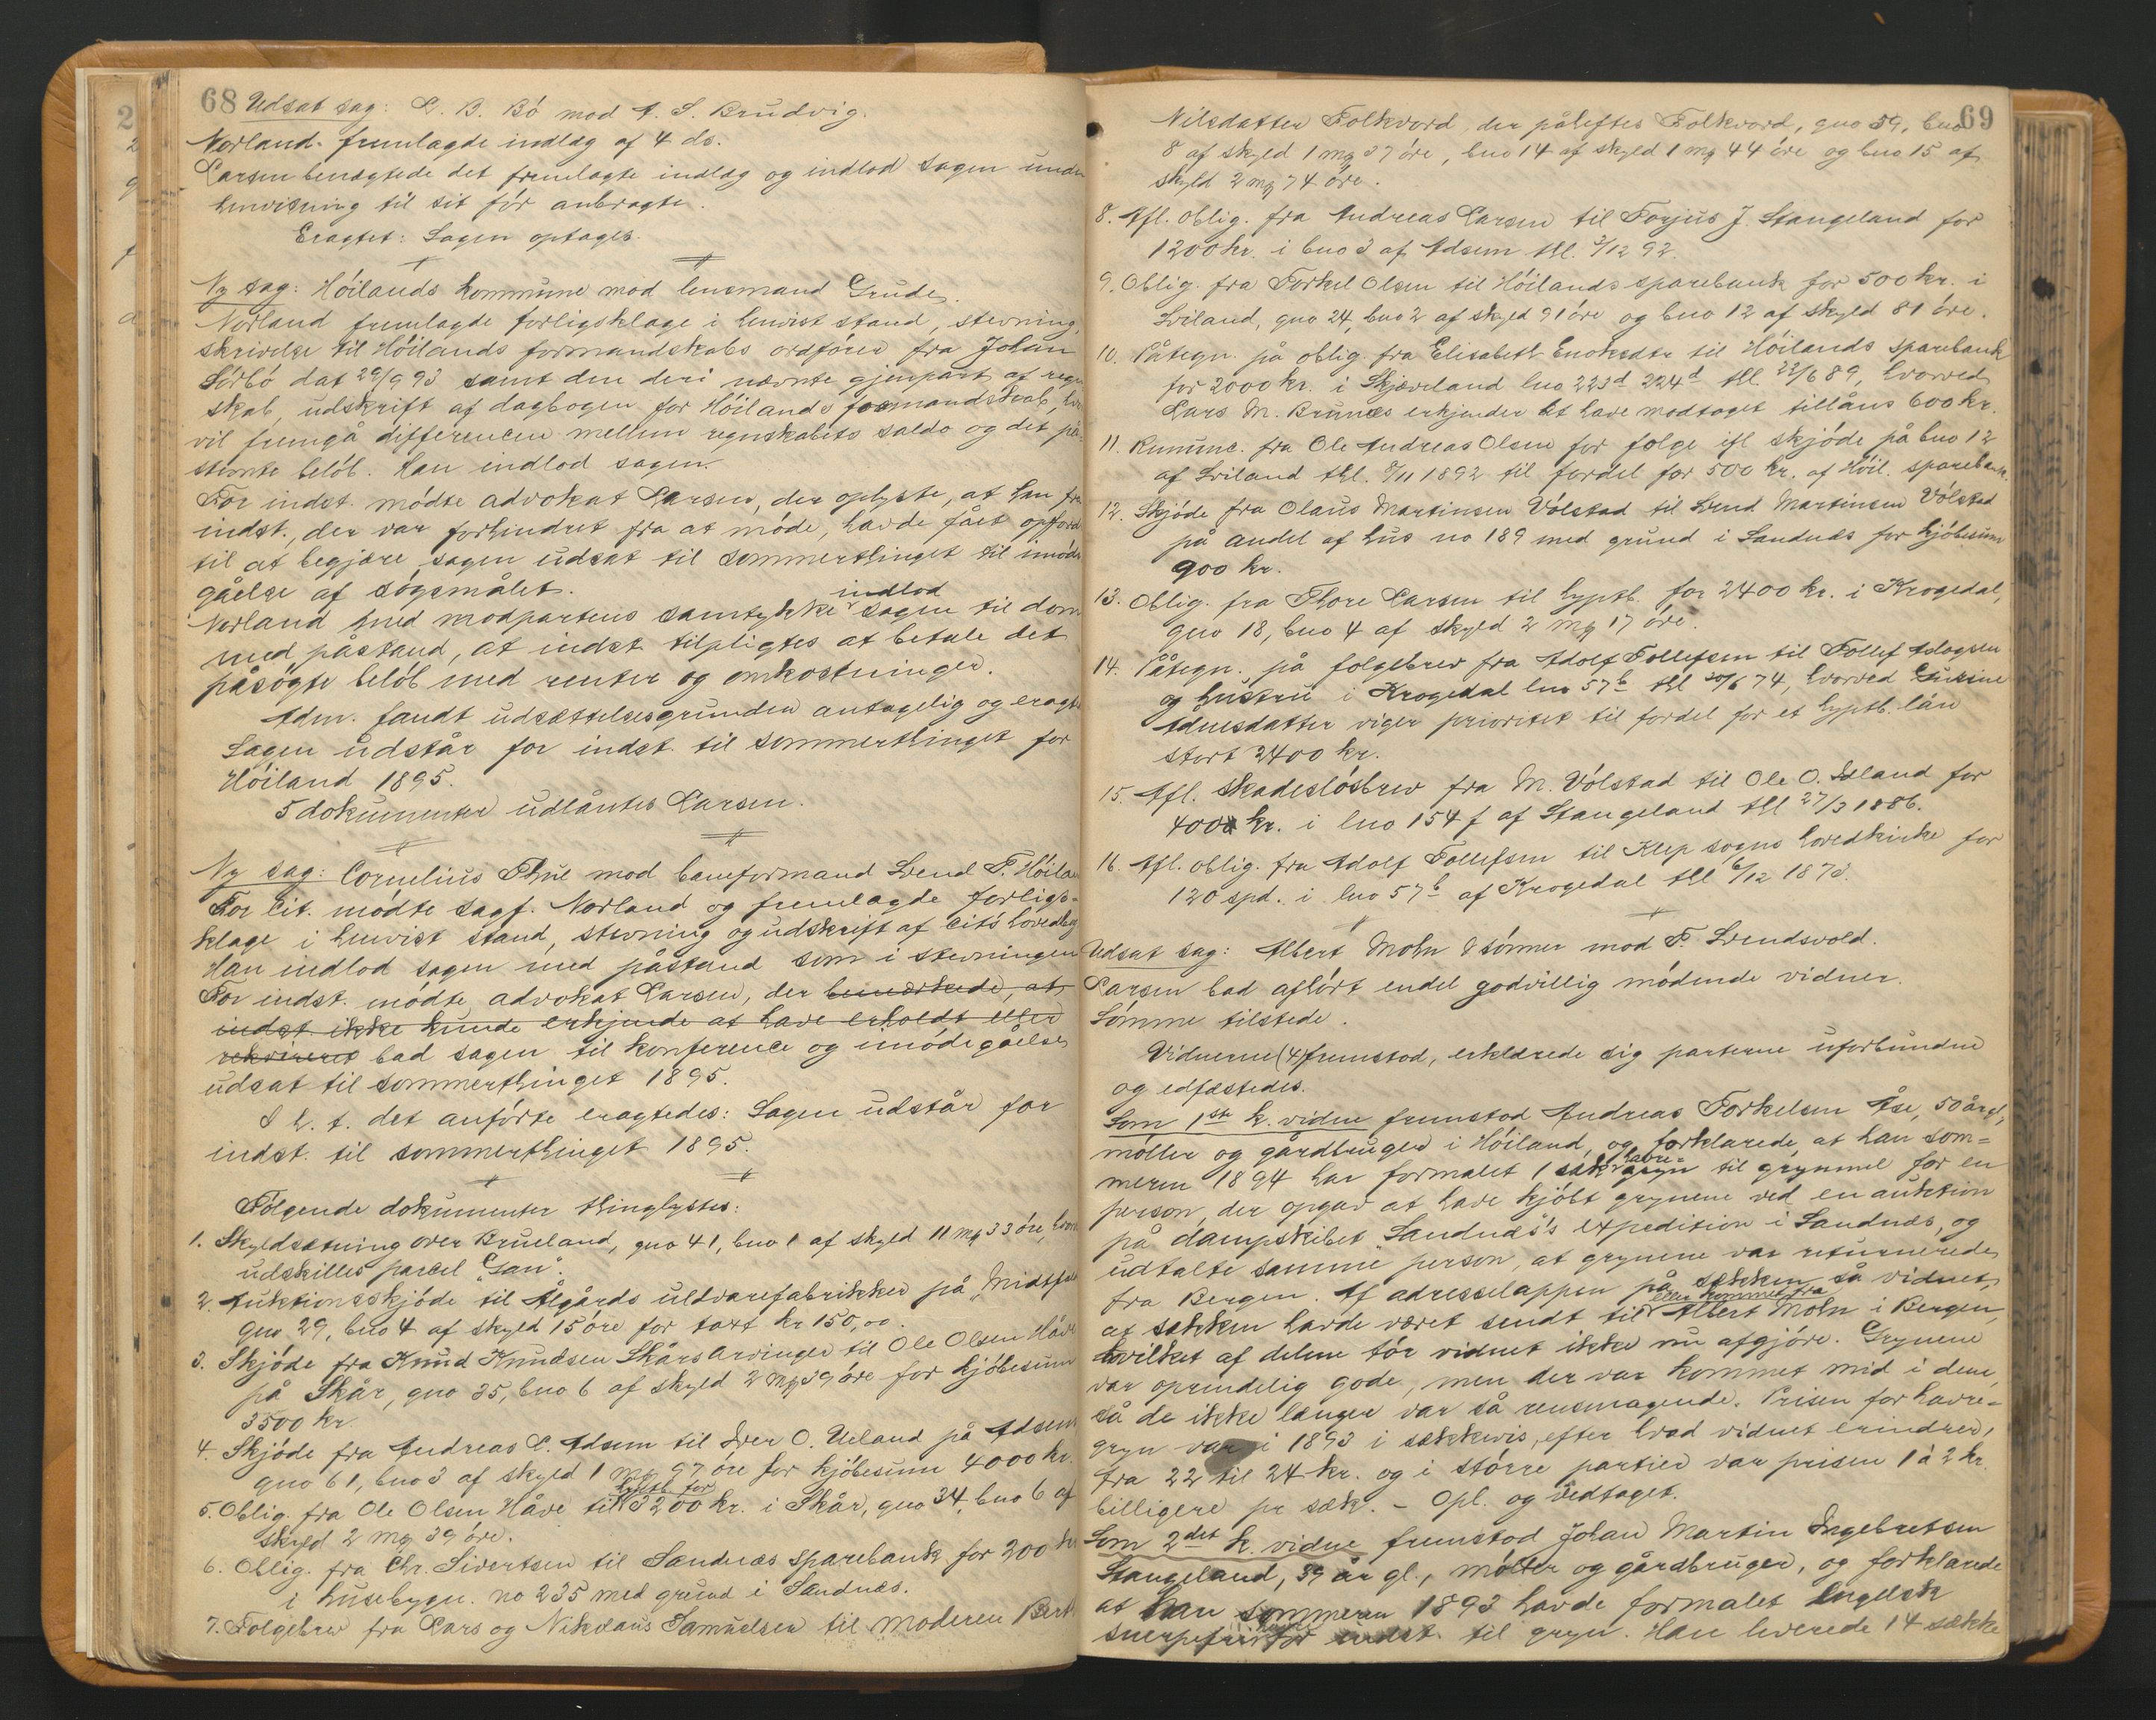 68 Udsat sag: L. B. Bö mod A. S. Brudvig.
Norland fremlagde indlæg af 4 ds.
Larsen benægtede det fremlagte indlæg og indlod sagen under
henvisning til sit för anbragte.
Eragtet: Sagen optages.
Ny sag: Höilands kommune mod lensmand Grude.
Norland fremlagde forligsklage i henvist stand, stevning,
skrivelse til Höilands formandskabs ordförer fra Johan
Sörbö dat 29/9 93 samt den deri nævnte gjenpart af regn
skab, udskrift af dagbogen for Höilands formandskab, hvo
vil fremgå differencen mellem regnskabets saldo og det på-
stevnte belöb. Han indlod sagen.
For indst. mödte advokat Larsen, der oplyste, at han fra
indst., der var forhindret fra at möde, havde fået opford
til at begjære sagen udsat til sommerthinget til imöde
gåelse af sögsmålet.
indlod
Norland med modpartens samtykke sagen til dom
med påstand, at indst. tilpligtes at betale det
påsögte belöb med renter og omkostninger.
Adm. fandt udsættelsesgrunden antagelig og eragted
Sagen udstår for indst. til sommerthinget for
Höiland 1895.
5 dokumenter udlåntes Larsen.
Ny sag: Cornelius Thue mod baneformand Svend T. Höilan
For cit. mödte sagf. Norland og fremlagde forligs-
klage i henvist stand, stevning og udskrift af cit's hovedbog
Han indlod sagen med påstand som i stevningen
For indst. mödte advokat Larsen, der bemærkede, at
indst. ikke kunde erkjende at have erholdt eller
rekvireret bad sagen til konference og imödegåelse
udsat til sommerthinget 1895.
I h. t. det anförte eragtedes: Sagen udstår for
indst. til sommerthinget 1895.
Fölgende dokumenter thinglystes:
1. Skyldsætning over Brueland, gno 41, bno 1 af skyld 11 mg 33 öre, hvor
udskilles parcel "Gan".
2. Auktionsskjöde til Ålgårds uldvarefabrikker på "Midtf
gno 29, bno 4 af skyld 15 öre for taxt kr 150,00.
3. Skjöde fra Knud Knudsen Skårs arvinger til Ole Olsen Håve
på Skår, gno 35, bno 6 af skyld 2 mg 39 öre for kjöbesum
3500 kr.
4. Skjöde fra Andreas L. Adsem til Iver O. Ueland på Adsem
gno 61, bno 3 af skyld 1 mg 97 öre for kjöbesum 4000 kr.
hyptb. for
5. Oblig. fra Ole Olsen Håve til 3200 kr. i Skår, gno 34, bno 6 af
skyld 2 mg 39 öre.
6. Oblig. fra Chr. Sivertsen til Sandnæs sparebank for 200 kr
i husebygn. no 235 med grund i Sandnæs.
7. Fölgebrev fra Lars og Nikolaus Samuelsen til moderen Berth
69
Nilsdatter Folkvord, der påheftes Folkvord, gno 59, bno
8 af skyld 1 mg 37 öre, bno 14 af skyld 1 mg 44 öre og bno 15 af
skyld 2 mg 74 öre.
8. Afl. oblig. fra Andreas Larsen til Torjus J. Stangeland for
1200 kr. i bno 3 af Adsem thl. 2/12 92.
9. Oblig. fra Torkel Olsen til Höilands sparebank for 500 kr. i
Sviland, gno 24, bno 2 af skyld 91 öre og bno 12 af skyld 81 öre.
10. Påtegn. på oblig. fra Elisabeth Enoksdtr til Höilands sparebank
for 2000 kr. i Skjæveland lno 223d 224d thl. 22/6 89, hvorved
Lars M. Brunæs erkjender at have modtaget tillåns 600 kr.
11. Renunc. fra Ole Andreas Olsen for fölge ifl skjöde på bno 12
af Sviland thl. 8/11 1892 til fordel for 500 kr. af Höil. sparebank.
12. Skjöde fra Olaus Martinsen Völstad til Svend Martinsen Völstad
på andel af hus no 189 med grund i Sandnæs for kjöbesum
900 kr.
13. Oblig. fra Thore Larsen til hyptb. for 2400 kr. i Krogedal,
gno 18, bno 4 af skyld 2 mg 17 öre.
14. Påtegn. på fölgebrev fra Adolf Tollefsen til Tollef Aslagsen
og hustru i Krogedal lno 57b thl 20/6 74, hvorved Gurine
Adnesdatter viger prioritet til fordel for et hyptb. lån
stort 2400 kr.
15. Afl. skadeslösbrev fra M. Völstad til Ole O. Island for
400 kr. i lno 154 f af Stangeland thl 27/3 1886.
16. Afl. oblig. fra Adolf Tollefsen til Klep sogns hovedkirke for
120 spd. i lno 57b af Krogedal thl 6/12 1873.
Udsat sag: Albert Mohn & sönner mod T. Svendsvold.
Larsen bad afhört endel godvillig mödende vidner.
Sömme tilstede.
Vidnerne (4) fremstod, erklærede sig parterne uforbundne
og edfæstedes.
Som 1ste h. vidne fremstod Andreas Torkelsen Åse, 50 år gl,
möller og gårdbruger i Höiland, og forklarede, at han som-
havre-
meren 1894 har formalet 1 sæk gryn til grynmel for en
person, der opgav at have kjöbt grynene ved en auktion
på dampskibet "Sandnæs"s expedition i Sandnæs, og
udtalte samme person, at grynene var returnerede
fra Bergen. Af adresselappen på sækken så vidnet,
eller kommet fra
at sækken havde været sendt til Albert Mohn i Bergen,
hvilket af delene tör vidnet ikke nu afgjöre. Grynene
var oprindelig gode, men der var kommet mid i dem,
så de ikke længer var så rensmagende. Prisen for havre-
gryn var i 1893 i sækkevis, efter hvad vidnet erindrer,
fra 22 til 24 kr. og i större partier var prisen 1 à 2 kr.
billigere pr sæk. - Opl. og vedtaget.
Som 2det h. vidne fremstod Johan Martin Ingebretsen
Stangeland, 39 år gl., möller og gårdbruger, og forklarede
at han sommeren 1893 havde formalet engelsk
for indst. til gryn. Han leverede 14 sække